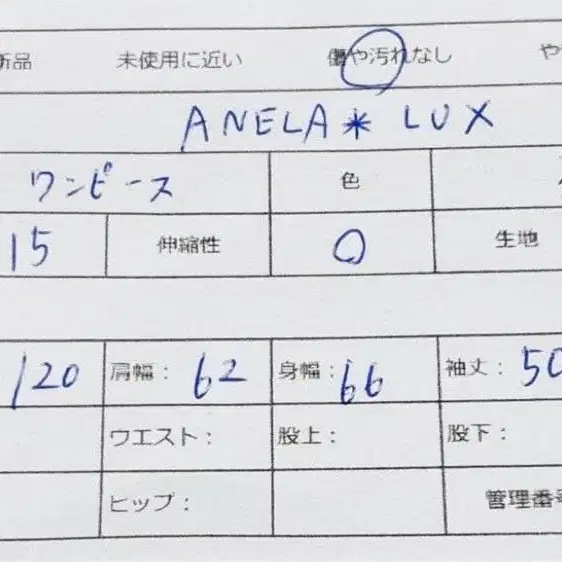 新品 未使用に近い 傷や汚れなし や
ANELA＊LUX
ワンピース 色
15 伸縮性 〇 生地
120 肩幅：62 身幅：66 袖丈：50
ウエスト： 股上： 股下：
ヒップ： 管理番号